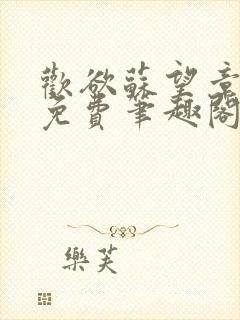 歡欲蘇望意
免費筆趣閣
樂芙